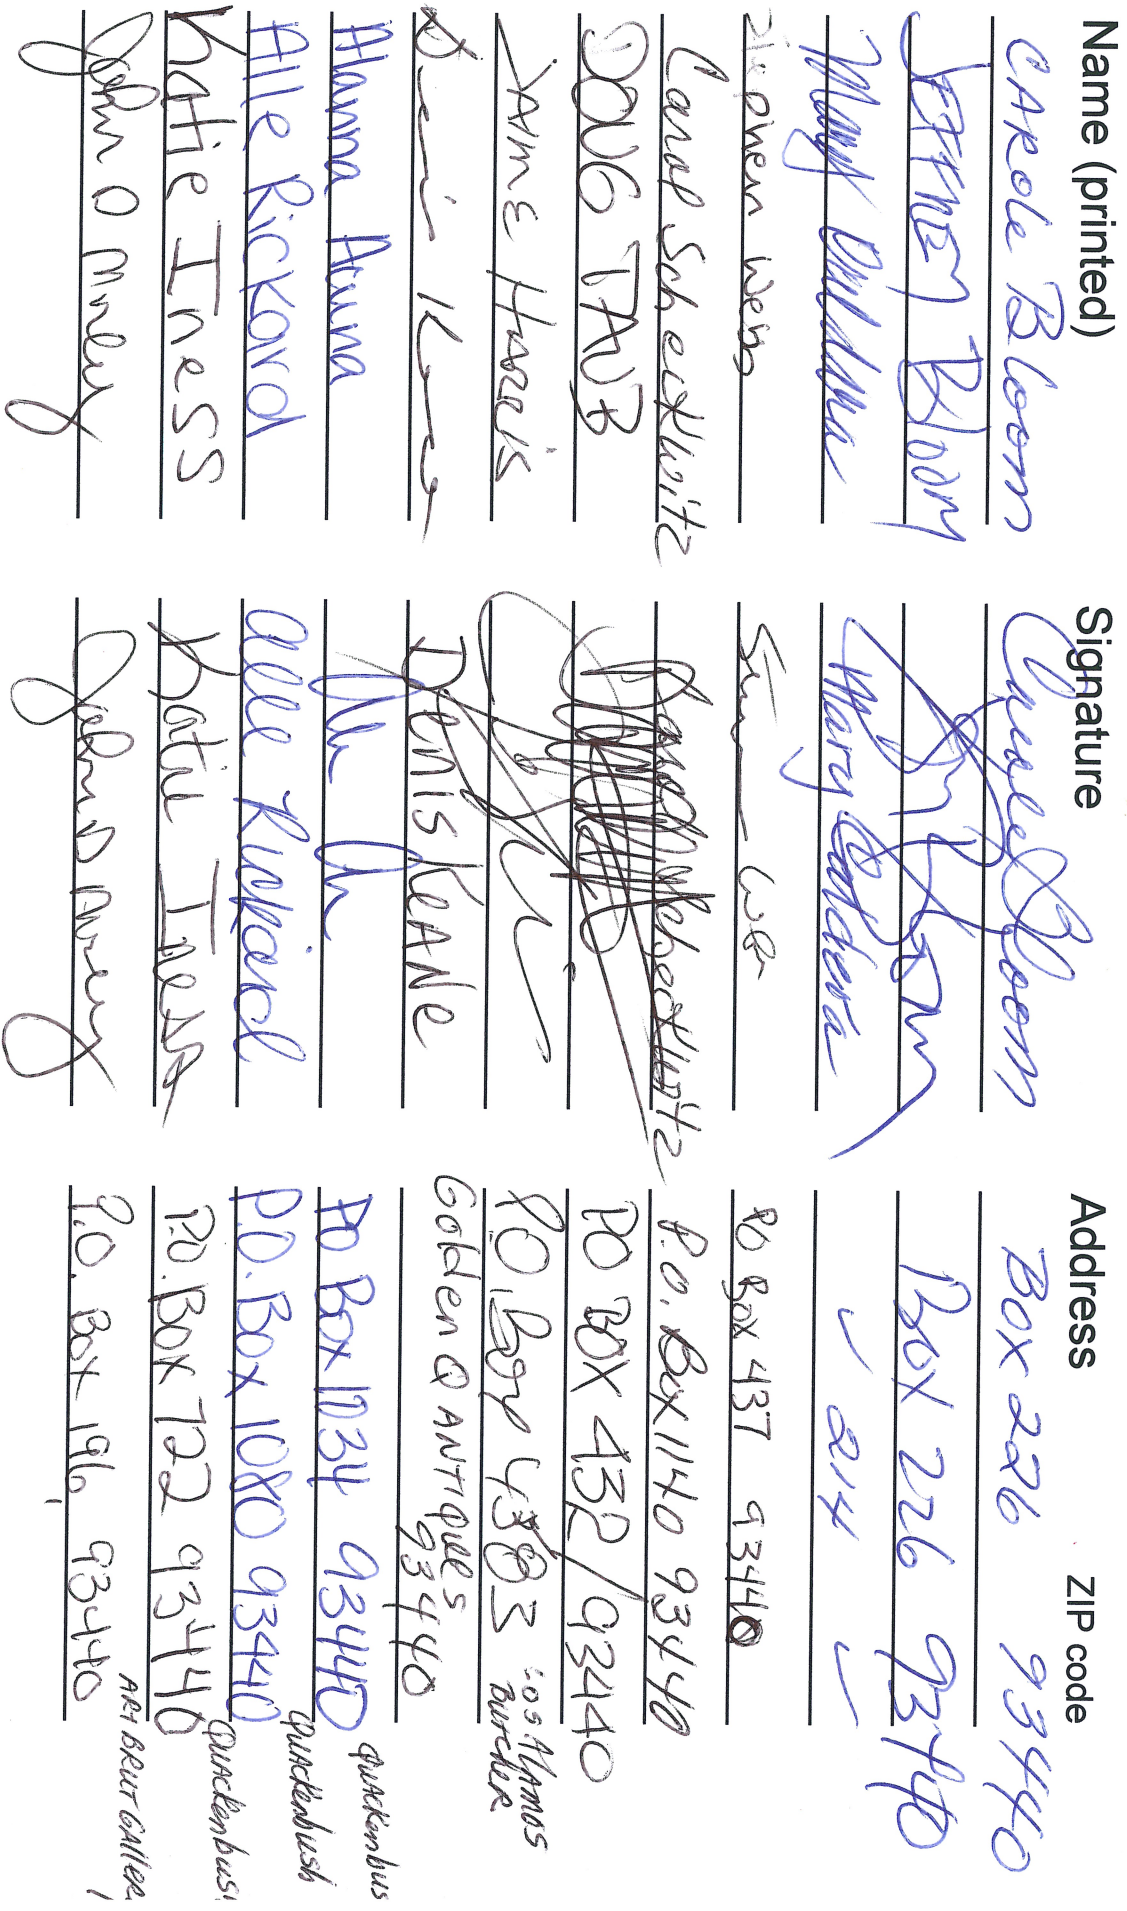 Name (printed) Signature Address ZIP code
CAROLE BLOOM Carole Bloom Box 226 93440
JEFFREY BLOOM Box 226 93440
Mary Mary ✓ 214 ✓
Stephen Webb PO Box 437 93440
Carol Scheckwitz Carol Scheckwitz P.O. Box 1140 93440
DOUG TAUB PO BOX 432/93440
JAIME HARRIS P.O. Box 4383 LOS ALAMOS BUTCHER
Denis Keane DENIS KEANE Golden Q ANTIQUES 93440
Alanna Hanna PO Box 1034 93440 QUACKENBUS
Alle Rickard Alle Rickard P.O. Box 1080 93440 QUACKENBUSH
Katie Iness Katie Iness P.O. Box 722 93440 QUACKENBUS
John D John D P.O. Box 196 93440 ART BRUT GALLER